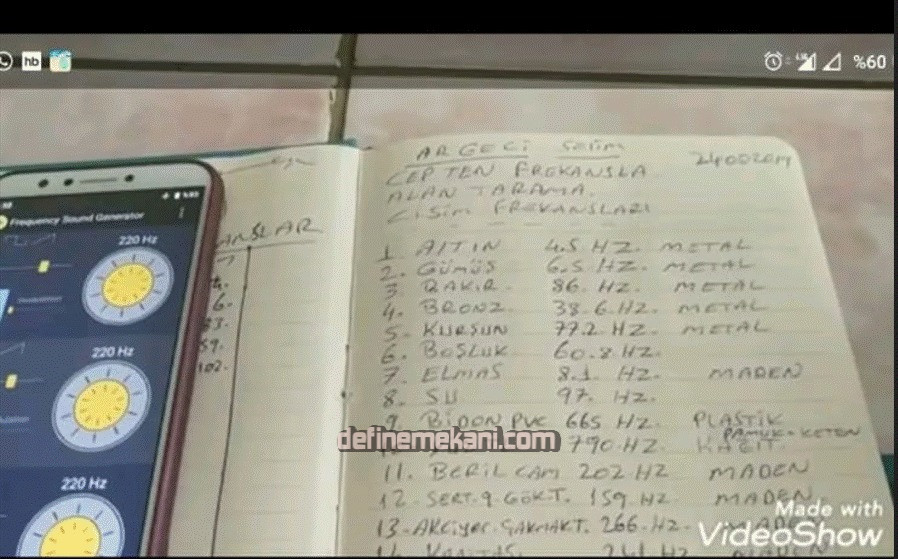 hb
%60
ARGECİ Selim
CEPTEN FREKANSLA
ALAN TARAMA.
CİSİM FREKANSLARI
1 ALTIN 4.5 HZ. METAL
2. GÜMÜŞ 6.5 HZ. METAL
3. BAKIR. 86. HZ. METAL
4. BRONZ. 38.6.HZ. METAL
5. KURŞUN 77.2 HZ. METAL
6. BOŞLUK 60.8 HZ.
7. ELMAS 8.1 HZ. MADEN
8. SU 97. HZ.
9. BİDON PVC 665 HZ. PLASTİK
PAMUK-KETEN
790.HZ.
11. BERİL CAM 202 HZ MADEN
12-SERT.9.GÖKT. 159.HZ. MADEN.
266.HZ.
definemekani.com
Frequency Sound Generator
220 Hz
220 Hz
220 Hz
ANSLAR
6.
102.
Made with
VideoShow